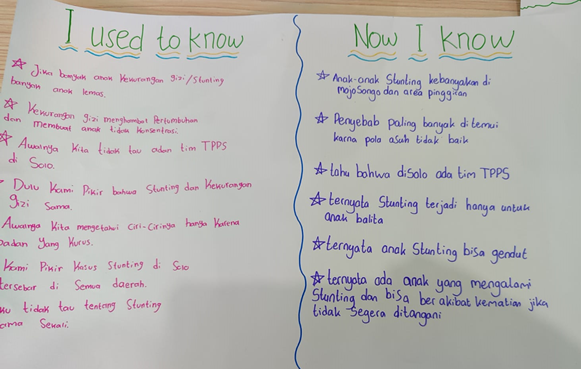 I used to know
Jika banyak anak kekurangan gizi/stunting
bangan anak lemas.
Kekurangan gizi menghambat Pertumbuhan
dan membuat anak tidak konsentrasi.
Awalnya kita tidak tau adan tim TPPS
di Solo.
Dulu Kami Pikir bahwa Stunting dan Kekurangan
gizi Sama.
Awalnya kita mengetahui ciri-cirinya hanya karena
badan yang kurus.
Kami Pikir Kasus Stunting di Solo
tersebar di Semua daerah.
tidak tau tentang Stunting
Sekali.
Now I know
Anak-anak Stunting kebanyakan di
mojoSongo dan area pinggiran
Penyebab paling banyak ditemui
karna pola asuh tidak baik
tahu bahwa disolo ada tim TPPS
ternyata Stunting terjadi hanya untuk
anak balita
ternyata anak Stunting bisa gendut
ternyata ada anak yang mengalami
Stunting dan bisa berakibat kematian jika
tidak segera ditangani